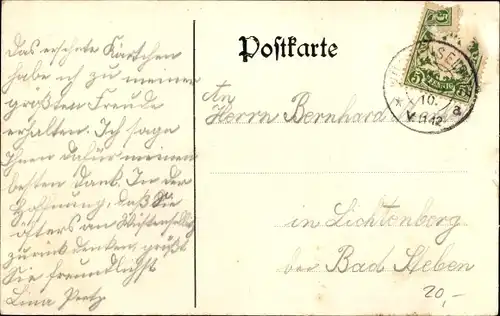 Das ersehnte Kärtchen
habe ich zu meiner
größten Freude
erhalten. Ich sage
Ihnen dafür meinen
besten Dank. In der
Hoffnung, daß Sie
öfters an
zurückdenken, grüßt
Sie freundlichst
Lina
Postkarte
An
Herrn Bernhard
in Lichtenberg
bei Bad Steben
20,-
5
5
10.
a